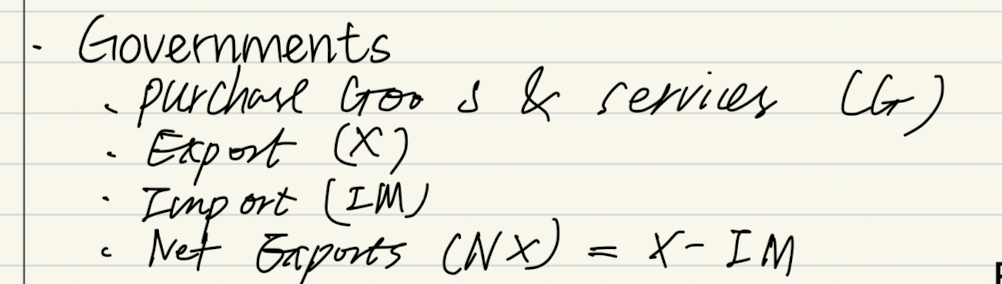 · Governments
· purchase Goo s & services (G)
· Export (X)
· Import (IM)
· Net Exports (NX) = X - IM